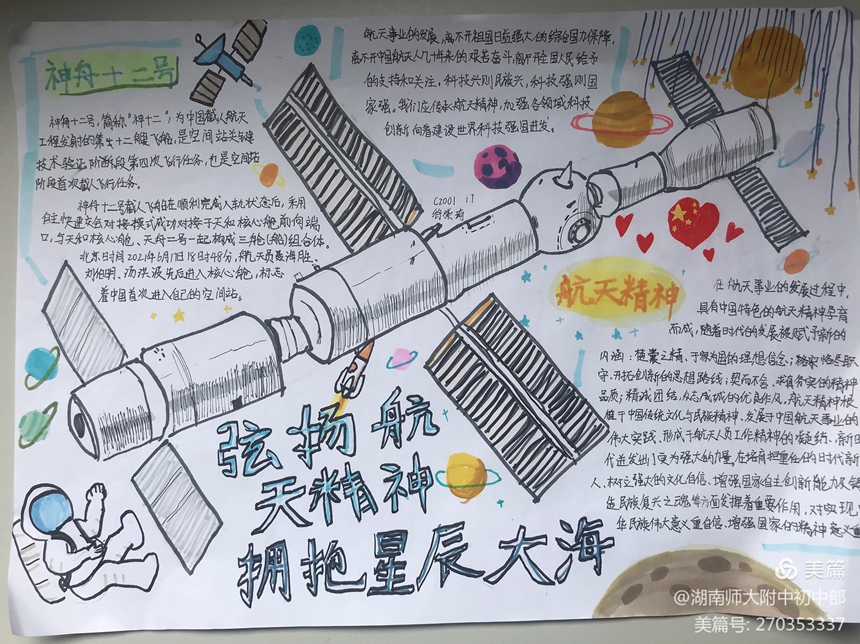 神舟十二号
神舟十二号,简称"神十二",为中国载人航天
工程发射的第十二艘飞船,是空间站关键
技术验证阶段第四次飞行任务,也是空间站
阶段首次载人飞行任务。
神舟十二号载人飞船在顺利完成入轨状态后,采用
自主快速交会对接模式成功对接于天和核心舱前向端
口,与天和核心舱、天舟二号一起构成三舱(船)组合体。
北京时间2021年6月17日18时48分,航天员聂海胜、
刘伯明、汤洪波先后进入核心舱,标志
着中国首次进入自己的空间站。
航天事业的发展,离不开祖国日益强大的综合国力保障,
离不开中国航天人几十年来的艰苦奋斗,离不开全国人民给予
的支持和关注,科技兴则民族兴,科技强则国
家强。我们应传承航天精神,加强各领域科技
创新,向着建设世界科技强国进发。
C2001 17
航天精神
在航天事业的发展过程中,
具有中国特色的航天精神孕育
而成,随着时代的发展被赋予新的
内涵:
守、开拓创新的思想路线;
品质;精诚团结、众志成城的优良作风。航天精神根
植于中国传统文化与民族精神、发展于中国航天事业的
伟大实践、形成于航天人员工作精神的凝结。新时
代迸发出了更为强大的力量。在培育担重任的时代新
人、树立强大的文化自信、增强国家自主创新能力及
民族复兴之魂等方面发挥着重要作用,对实现
华民族伟大意义重自信、增强国家的精神意义重
弦扬航
天精神
拥抱星辰大海
美篇
@湖南师大附中初中部
美篇号: 270353337